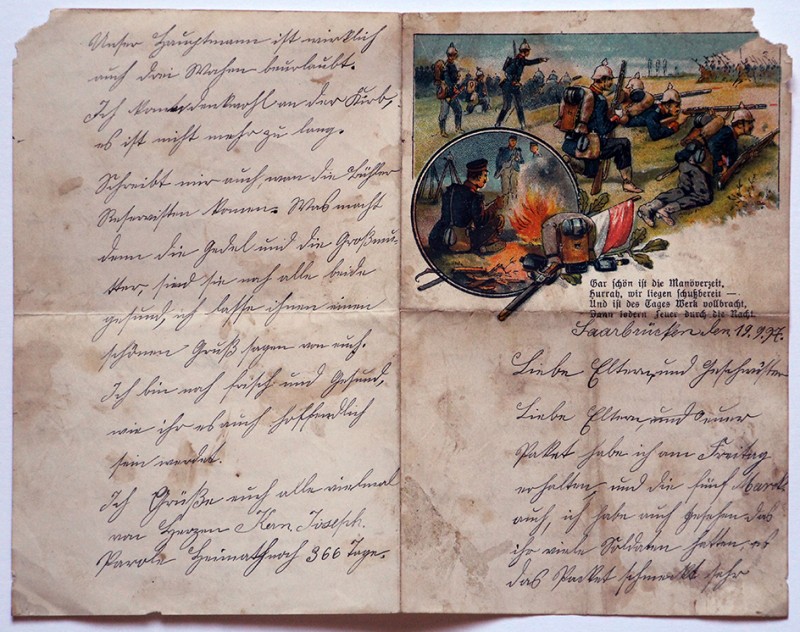 Unser Hauptmann ist wirklich
auch drei Wochen beurlaubt.
Ich denkwohl an der Kirb,
es ist nicht mehr zu lang.
Schreibt mir auch, wan die Bühler
Reservisten komen. Was macht
denn die Gedel und die Großmu-
tter, sind sie noch alle beide
gesund, ich lasse ihnen einen
schönen Gruß sagen von euch.
Ich bin noch frisch und Gesund,
wie ihr es auch hoffendlich
sein werdet.
Ich Grüße euch alle vielmal
von Herzen Joseph.
Parole Heimath noch 366 Tage.
Gar schön ist die Manöverzeit,
Hurrah, wir liegen schußbereit —
Und ist des Tages Werk vollbracht,
Dann lodern Feuer durch die Nacht.
Saarbrücken den 19.9.97.
Liebe Eltern und Geschwister
Liebe Eltern, und Euer
Paket habe ich am Freitag
erhalten, und die fünf Mark
auch, ich habe auch gesehen das
ihr viele Soldaten hatten, es
das Packet schmeckt sehr